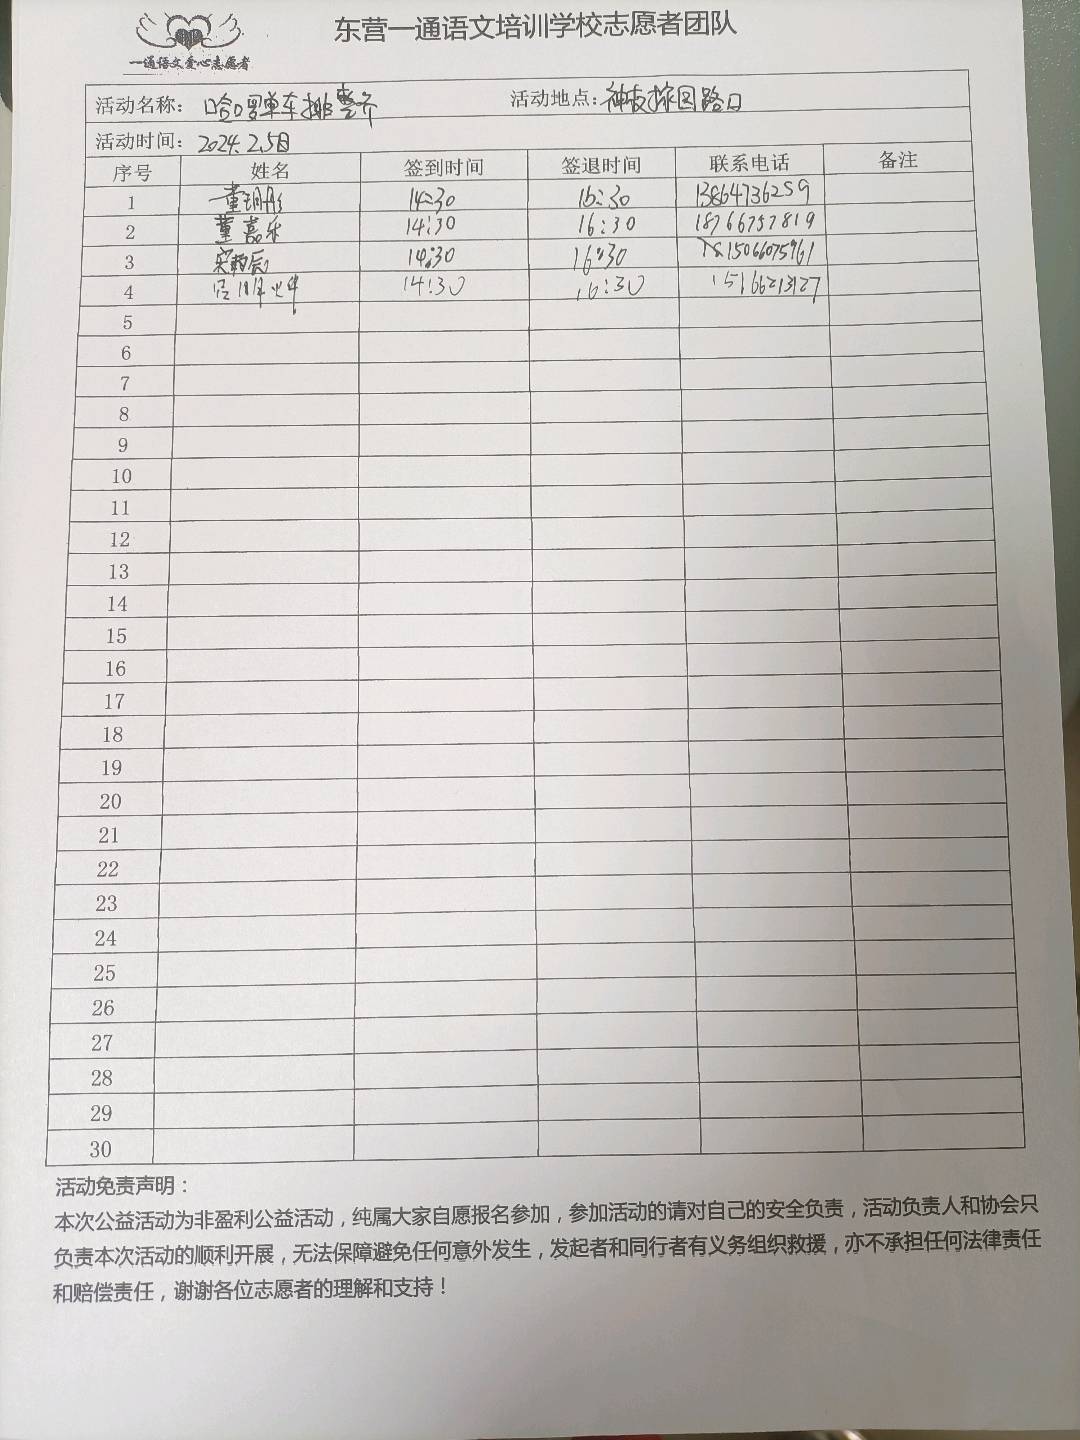 东营一通语文培训学校志愿者团队
一通语文爱心志愿者
活动名称：哈啰单车排整齐 活动地点：路口
活动时间：2024.2.5日
序号 姓名 签到时间 签退时间 联系电话 备注
1 14:30 16:30 13864736259
2 董嘉乐 14:30 16:30 18766757819
3 14:30 16:30 15066075961
4 14:30 16:30 15166213127
5
6
7
8
9
10
11
12
13
14
15
16
17
18
19
20
21
22
23
24
25
26
27
28
29
30
活动免责声明：
本次公益活动为非盈利公益活动，纯属大家自愿报名参加，参加活动的请对自己的安全负责，活动负责人和协会只
负责本次活动的顺利开展，无法保障避免任何意外发生，发起者和同行者有义务组织救援，亦不承担任何法律责任
和赔偿责任，谢谢各位志愿者的理解和支持！